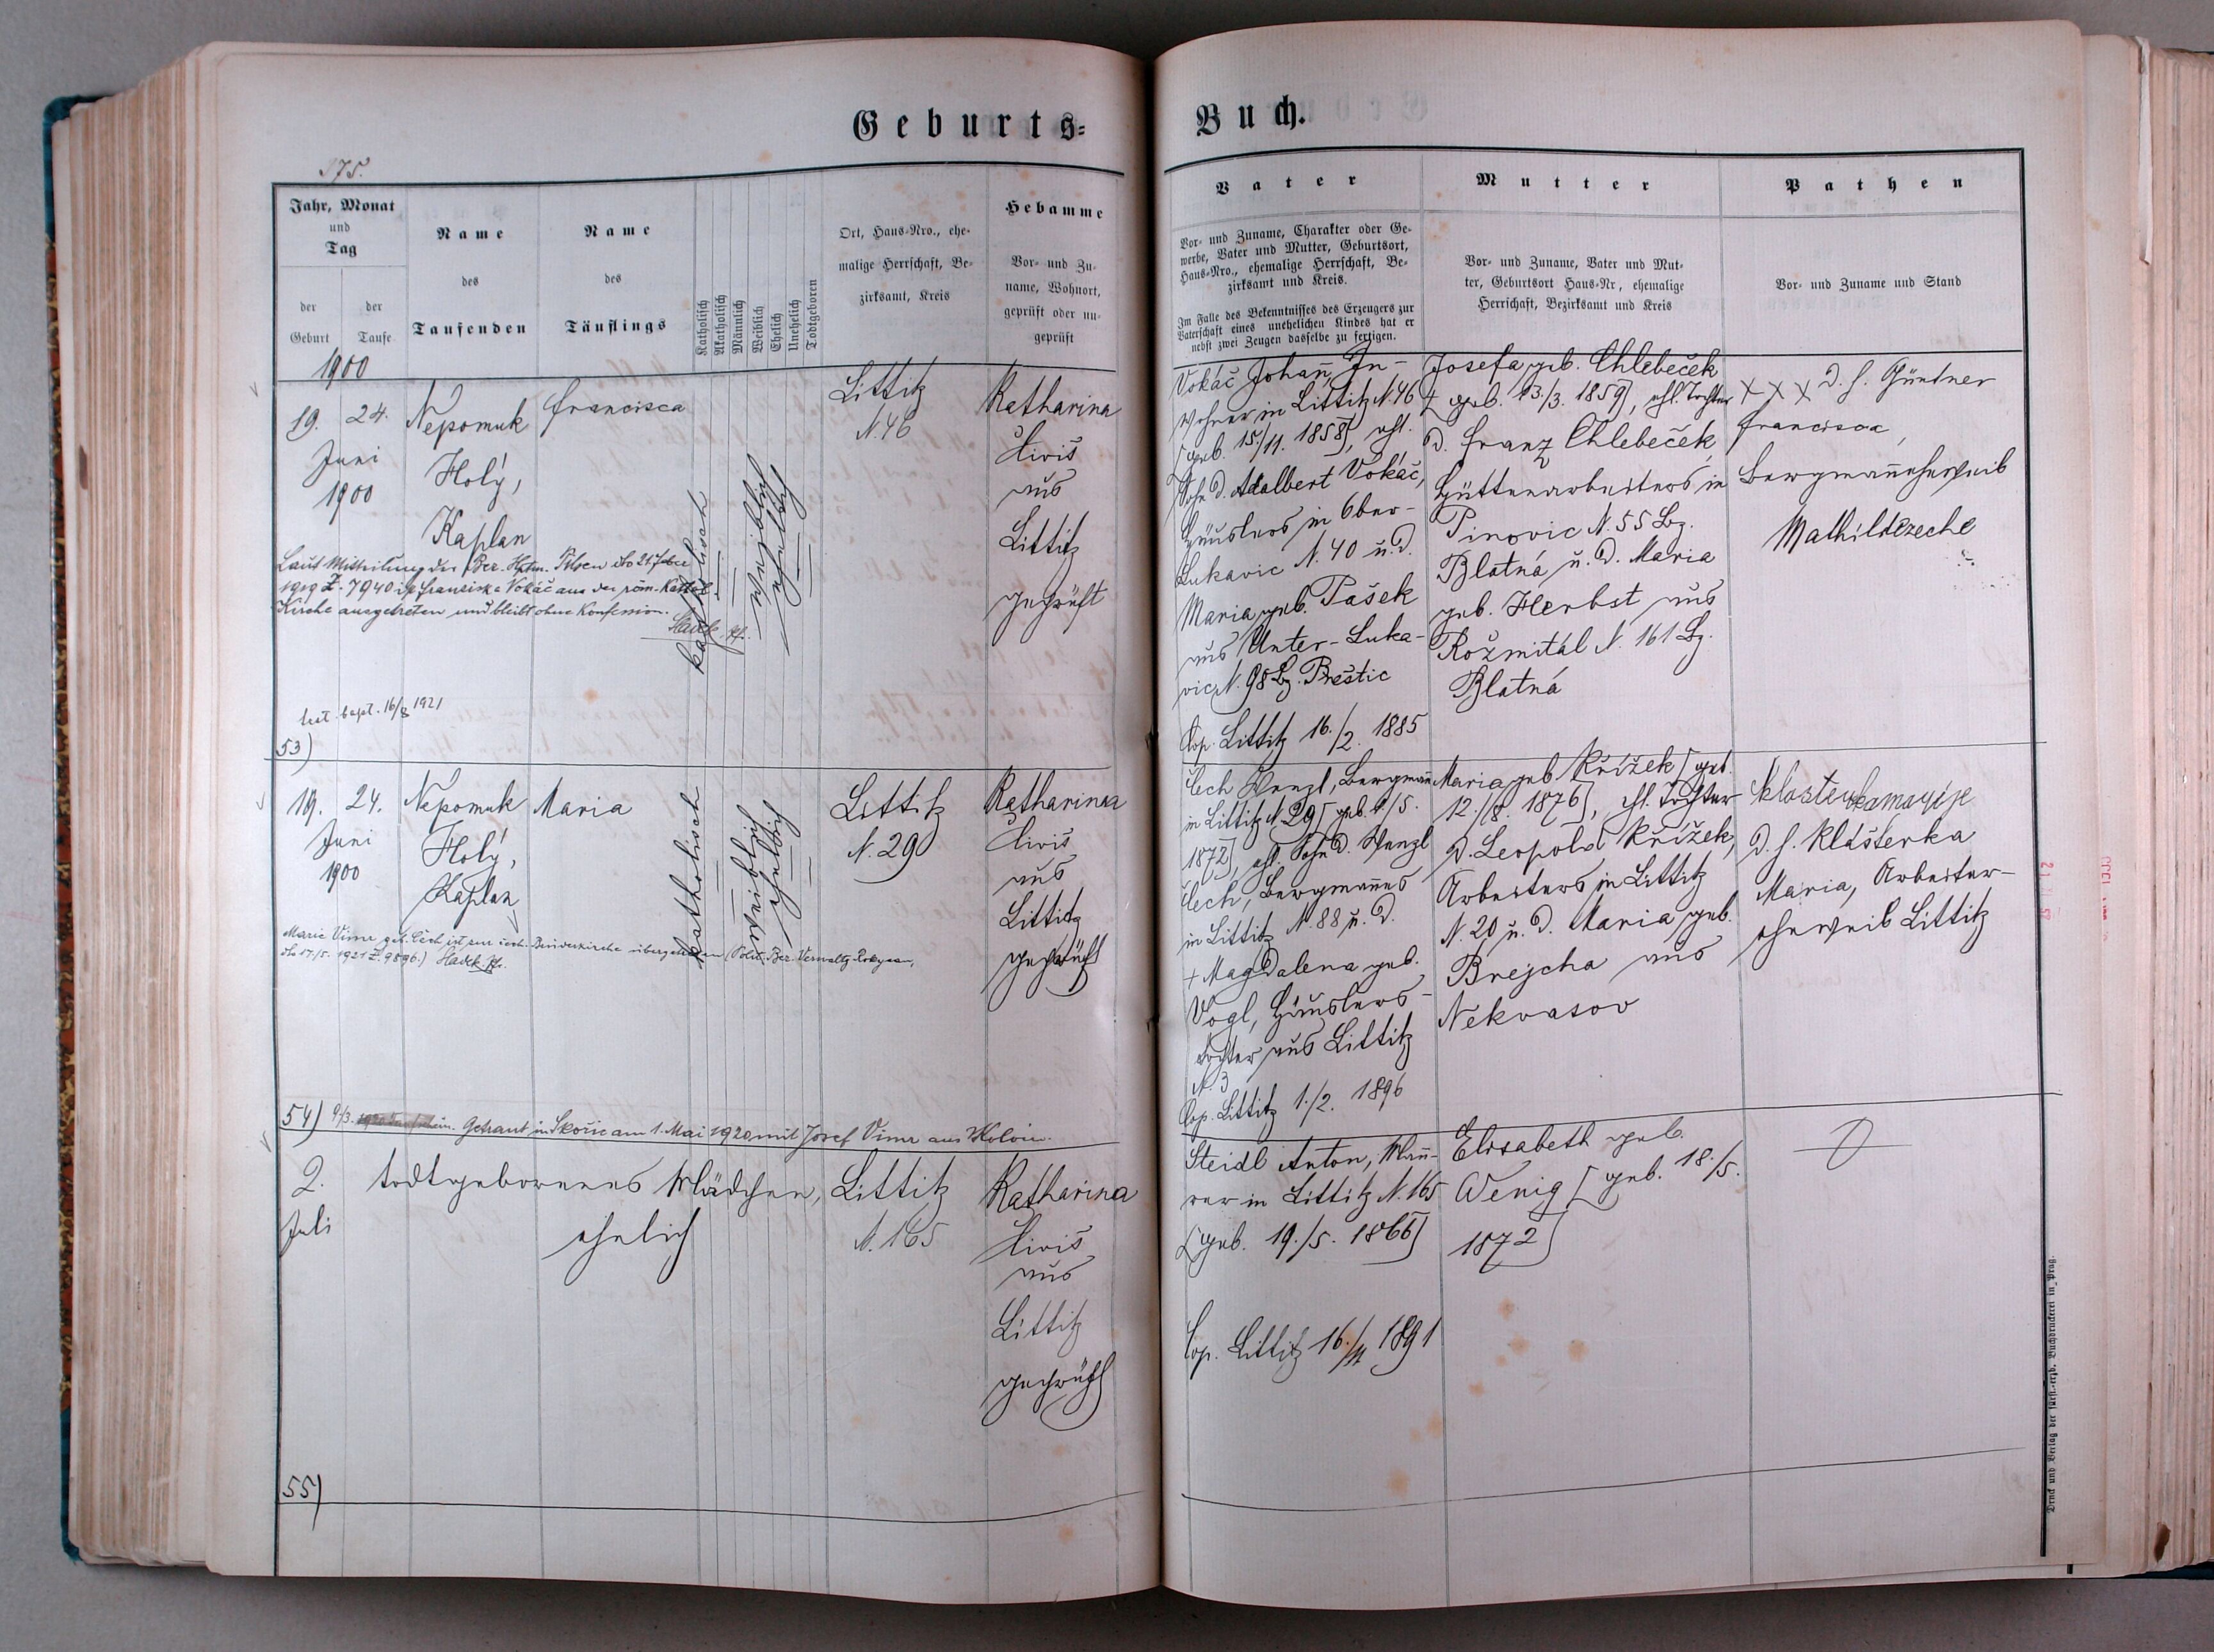 Geburts=
Buch.
175.
Jahr, Monat
und
Tag
der
Geburt
der
Taufe
Name
des
Taufenden
Name
des
Täuflings
Katholisch
Akatholisch
Männlich
Weiblich
Ehelich
Unehelich
Todtgeboren
Ort, Haus-Nro., ehe-
malige Herrschaft, Be-
zirksamt, Kreis
Hebamme
Vor- und Zu-
name, Wohnort,
geprüft oder un-
geprüft
Vater
Vor- und Zuname, Charakter oder Ge-
werbe, Vater und Mutter, Geburtsort,
Haus-Nro., ehemalige Herrschaft, Be-
zirksamt und Kreis.
Im Falle des Bekenntnisses des Erzeugers zur
Vaterschaft eines unehelichen Kindes hat er
nebst zwei Zeugen dasselbe zu fertigen.
Mutter
Vor- und Zuname, Vater und Mut-
ter, Geburtsort Haus-Nr, ehemalige
Herrschaft, Bezirksamt und Kreis
Pathen
Vor- und Zuname und Stand
1900
19.
24.
Juni
1900
Nepomuk
Holý,
Kaplan
Francisca
katholisch
weiblich
ehelich
Littitz
N. 46
Katharina
Hiviš
aus
Littitz
geprüft
Laut Mitteilung der Bez. Hptm. Pilsen dto 21. Feber
1919 Z. 7940 ist Franziska Vokáč aus der röm. Kathol.
Kirche ausgetreten und bleibt ohne Konfession.
Hadek. Pf.
lit. bapt. 16/8 1921
53)
Vokáč Johan̄, In-
wohner in Littitz N. 46
[geb. 15./11. 1858], ehl.
Sohn d. Adalbert Vokáč,
Häuslers in Ober-
Lukavic N. 40 u. d.
Maria geb. Pašek
aus Unter-Luka-
vic N. 98 Bz. Přeštic
Cop. Littitz 16./2. 1885
Josefa geb. Chlebeček
[geb. 13./3. 1859], ehl. Tochter
d. Franz Chlebeček,
Hüttenarbeiters in
Pinovic N. 55 Bz.
Blatná u. d. Maria
geb. Herbst aus
Rožmitál N. 161 Bz.
Blatná
x x x d. h. Güntner
Francisca,
Bergman̄sehefrau
Mathildezeche
19.
24.
Juni
1900
Nepomuk
Holý,
Kaplan
Maria
katholisch
weiblich
ehelich
Littitz
N. 29
Katharina
Hiviš
aus
Littitz
geprüft
Marie Vimr geb. Čech ist zur čech. Brüderkirche übergetreten (Polit. Bez. Verwaltg Rokycan,
dto 17./5. 1921 Z. 9896.) Hadek. Pf.
54)
9/3. Getraut in Skořic am 1. Mai 1920 mit Josef Vimr aus
Čech Wenzl, Bergman̄
in Littitz N. 29 [geb. 1/5.
1872], ehl. Sohn d. Wenzl
Čech, Bergman̄es
in Littitz N. 88 u. d.
+ Magdalena geb.
Vogl, Häuslers-
tochter aus Littitz
N. 3
Cop. Littitz 1./2. 1896
Maria geb. Křížek [geb.
12./8. 1876], ehl. Tochter
d. Leopold Křížek,
Arbeiters in Littitz
N. 20 u. d. Maria geb.
Brejcha aus
Nekvasov
d. h. Klášterka
Maria, Arbeiter-
eheweib Littitz
2.
Juli
todtgeborenes Mädchen,
ehelich
Littitz
N. 165
Katharina
Hiviš
aus
Littitz
geprüft
55)
Steidl Anton, Mau-
rer in Littitz N. 165
[geb. 19./5. 1866]
Cop. Littitz 16./11 1891
Elisabeth geb.
Wenig [geb. 18./5.
1872]
Druck und Verlag der fürst.-erzb. Buchdruckerei in Prag.